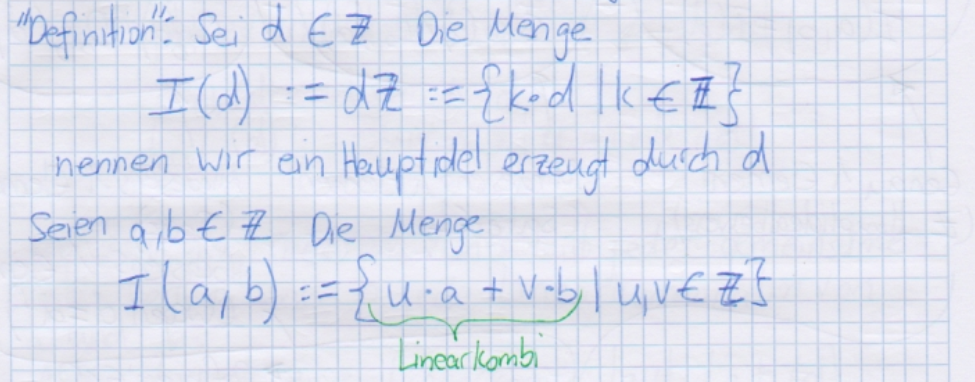 "Definition": Sei d ∈ ℤ Die Menge
I(d) := dℤ := {k·d | k ∈ ℤ}
nennen wir ein Hauptidel erzeugt durch d
Seien a,b ∈ ℤ Die Menge
I(a,b) := {u·a + v·b | u,v ∈ ℤ}
Linearkombi